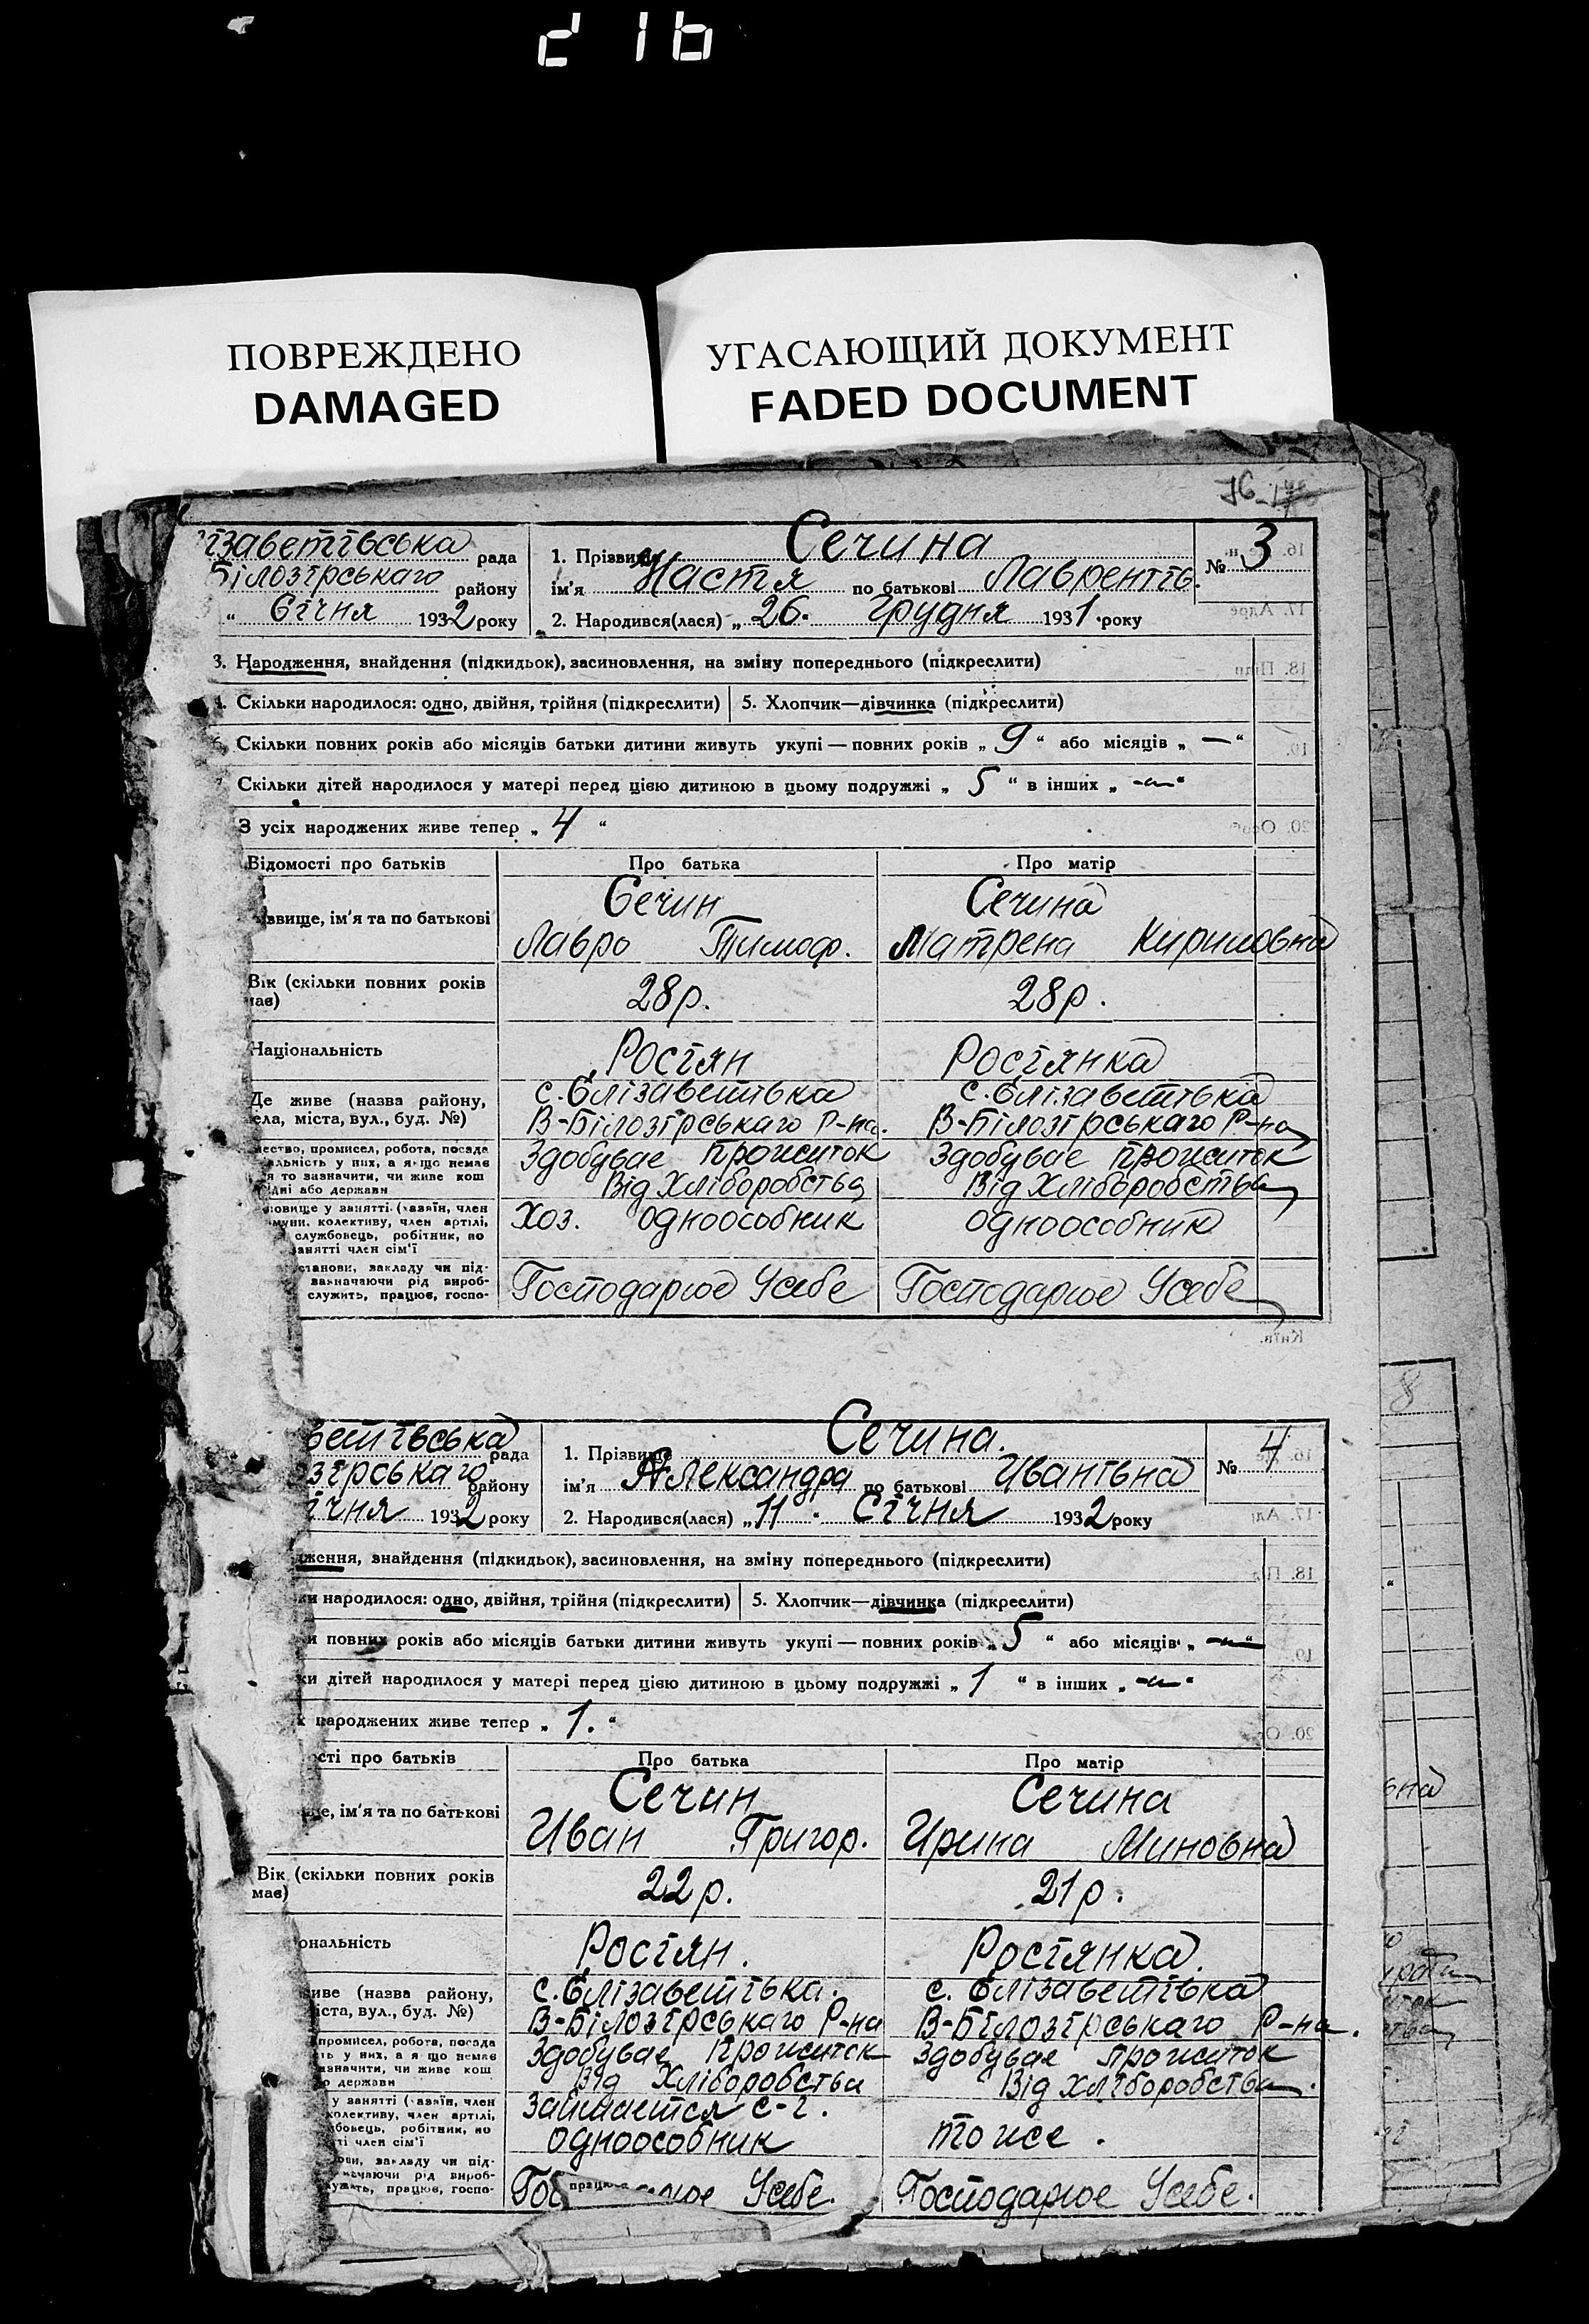 216
ПОВРЕЖДЕНО
DAMAGED
УГАСАЮЩИЙ ДОКУМЕНТ
FADED DOCUMENT
76
ізаветівська рада
Білозірськаго району
" Січня 1932 року
1. Прізвище Сечина
ім'я Настя по батькові Лаврентів.
2. Народився(лася) „ 26. Грудня 1931 року
№ 3
3. Народження, знайдення (підкидьок), засиновлення, на зміну попереднього (підкреслити)
4. Скільки народилося: одно, двійня, трійня (підкреслити) 5. Хлопчик—дівчинка (підкреслити)
Скільки повних років або місяців батьки дитини живуть укупі — повних років „ 9 “ або місяців „ — “
Скільки дітей народилося у матері перед цією дитиною в цьому подружжі „ 5 “ в інших „ -„- “
З усіх народжених живе тепер „ 4 “
Відомості про батьків Про батька Про матір
звище, ім'я та по батькові
Сечин
Лавро Тимоф.
Сечина
Матрена Кириловна
Вік (скільки повних років
має)
28 р. 28 р.
Національність Росіян Росіянка
Де живе (назва району,
села, міста, вул., буд. №)
с. Єлізаветівка
В-Білозірськаго Р-на.
с. Єлізаветівка
В-Білозірськаго Р-на
ество, промисел, робота, посада
альність у них, а якщо немає
я то зазначити, чи живе кош
дні або держави
Здобувае Прожиток
Від Хліборобства
Здобувае прожиток
Від Хліборобства
овище у занятті (хазяїн, член
муни, колективу, член артілі,
службовець, робітник, по
занятті член сім'ї
Хоз. одноособник одноособник
станови, закладу чи під-
зазначаючи рід вироб-
служить, працює, госпо-
Господарює Усебе Господарює Усебе
Київ.
ветівська рада
зірськаго району
ічня 1932 року
1. Прізвище Сечина.
ім'я Александра по батькові Ивантвна
2. Народився(лася) „ 11 . Січня 1932 року
№ 4
дження, знайдення (підкидьок), засиновлення, на зміну попереднього (підкреслити)
ки народилося: одно, двійня, трійня (підкреслити) 5. Хлопчик—дівчинка (підкреслити)
и повних років або місяців батьки дитини живуть укупі — повних років „ 5 “ або місяців „ -„- “
ки дітей народилося у матері перед цією дитиною в цьому подружжі „ 1 “ в інших „ -„- “
народжених живе тепер „ 1. “
ості про батьків Про батька Про матір
ще, ім'я та по батькові
Сечин
Иван Григор.
Сечина
Ирина Миновна
Вік (скільки повних років
має)
22 р. 21 р.
ональність Росіян. Росіянка.
живе (назва району,
міста, вул., буд. №)
с. Єлізаветівка.
В-Білозірськаго Р-на
с. Єлізаветівка
В-Білозірськаго Р-на.
промисел, робота, посада
ть у них, а якщо немає
азначити, чи живе кош
о держави
Здобувае Прожиток
Від Хліборобства
Здобувае прожиток
Від Хліборобства.
у занятті (хазяїн, член
колективу, член артілі,
бовець, робітник, по
ті член сім'ї
Займается с-г.
одноособник
тоже.
ови, закладу чи під-
начаючи рід вироб-
ужить, працює, госпо-
Усебе. Господарює Усебе.
8